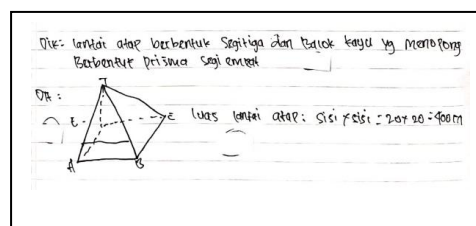 Dik: lantai atap berbentuk segitiga dan Balok kayu yg menopong
Berbentuk prisma segi empat
Dit:
T
E
E luas lantai atap: sisi x sisi = 20x20 = 400m
A
B